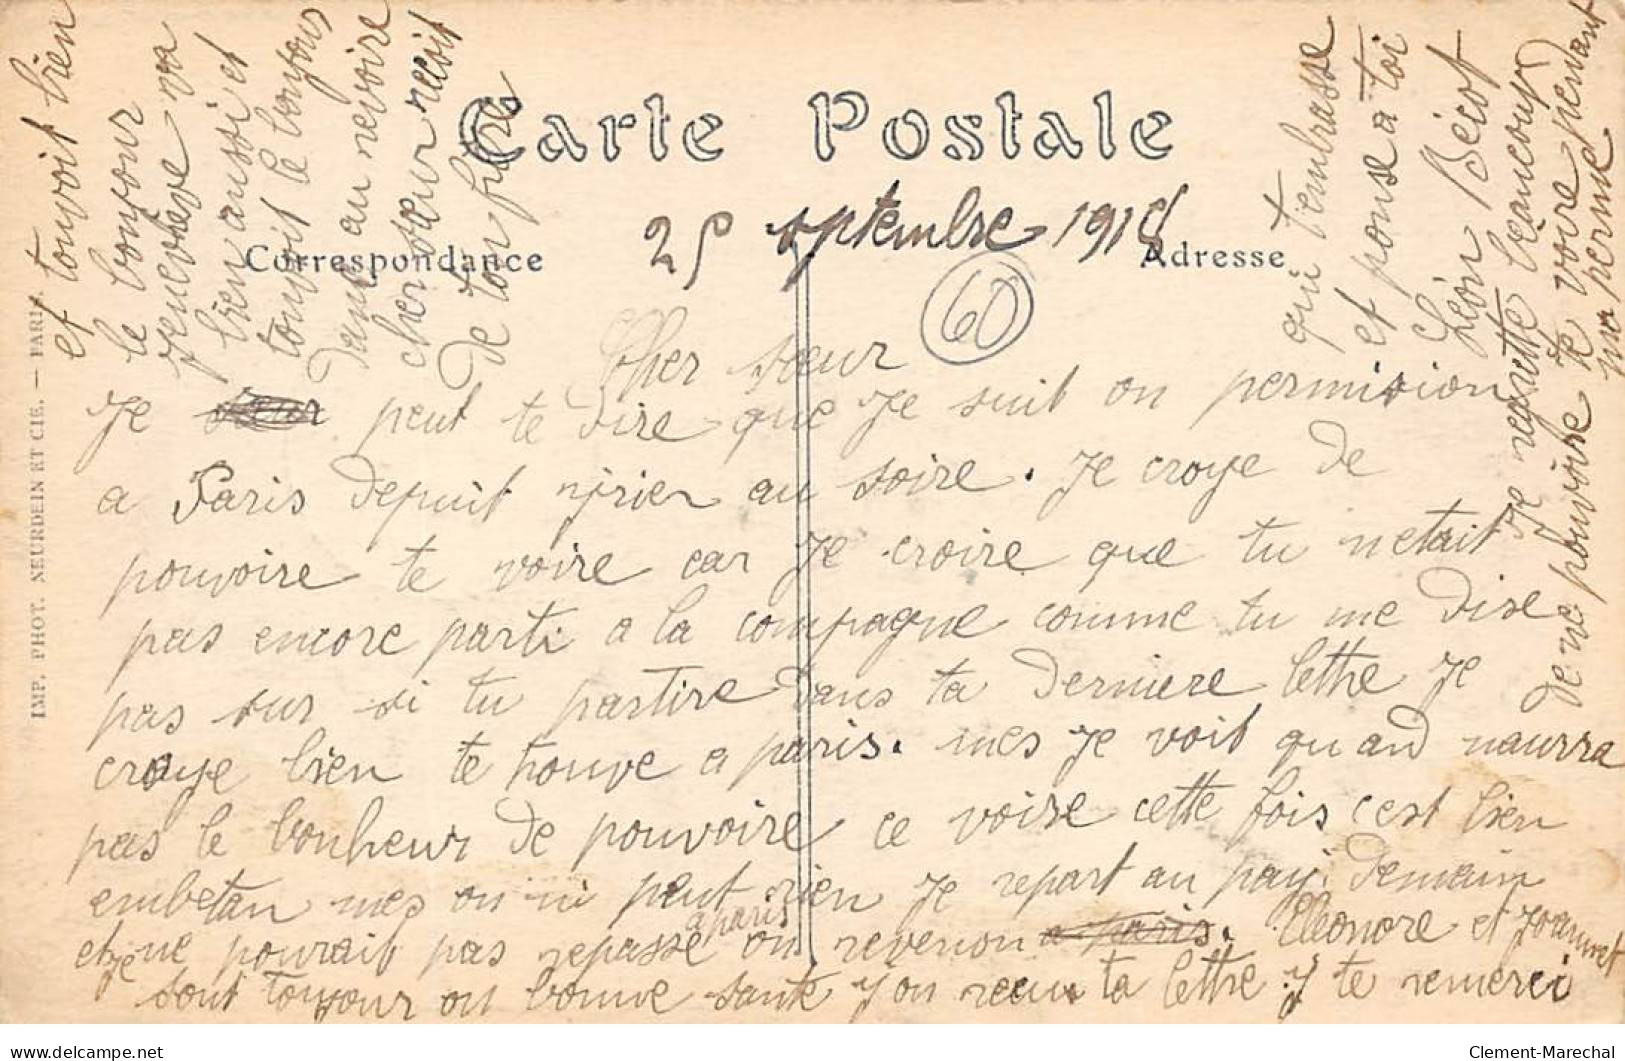 Carte Postale
Correspondance
Adresse
25 septembre 1918
60
Cher sœur
Je peut te dire que Je suit on permision
a Paris depuit hier au soire. Je croye de
pouvoire te voire car Je croire que tu netait
pas encore parti a la compagne comme tu me dise
pas sur si tu partire dans ta derniere lettre Je
croye bien te trouve a paris. mes Je voit quand naurra
pas le bonheur de pouvoire ce voire cette fois c'est bien
embetan mes on ni peut rien Je repart au pay demain
et je ne pourait pas repasse a paris on revenon a paris. Eleonore et Joannet
sont toujour on bonne sante y on recu ta lettre. Y te remerci
et tonvoit bien
le bonjour
Jeneviève va
bien aussi et
tonvoit le bonjous
Dans au revoire
cher sœur recoit
de ton frère
qui tembrasse
et ponse a toi
Léon Bécot
Je regrette beaucoup
de ne pouvoire te voire pendant
ma perme
IMP. PHOT. NEURDEIN ET CIE. — PARIS.
delcampe.net
Clement-Marechal